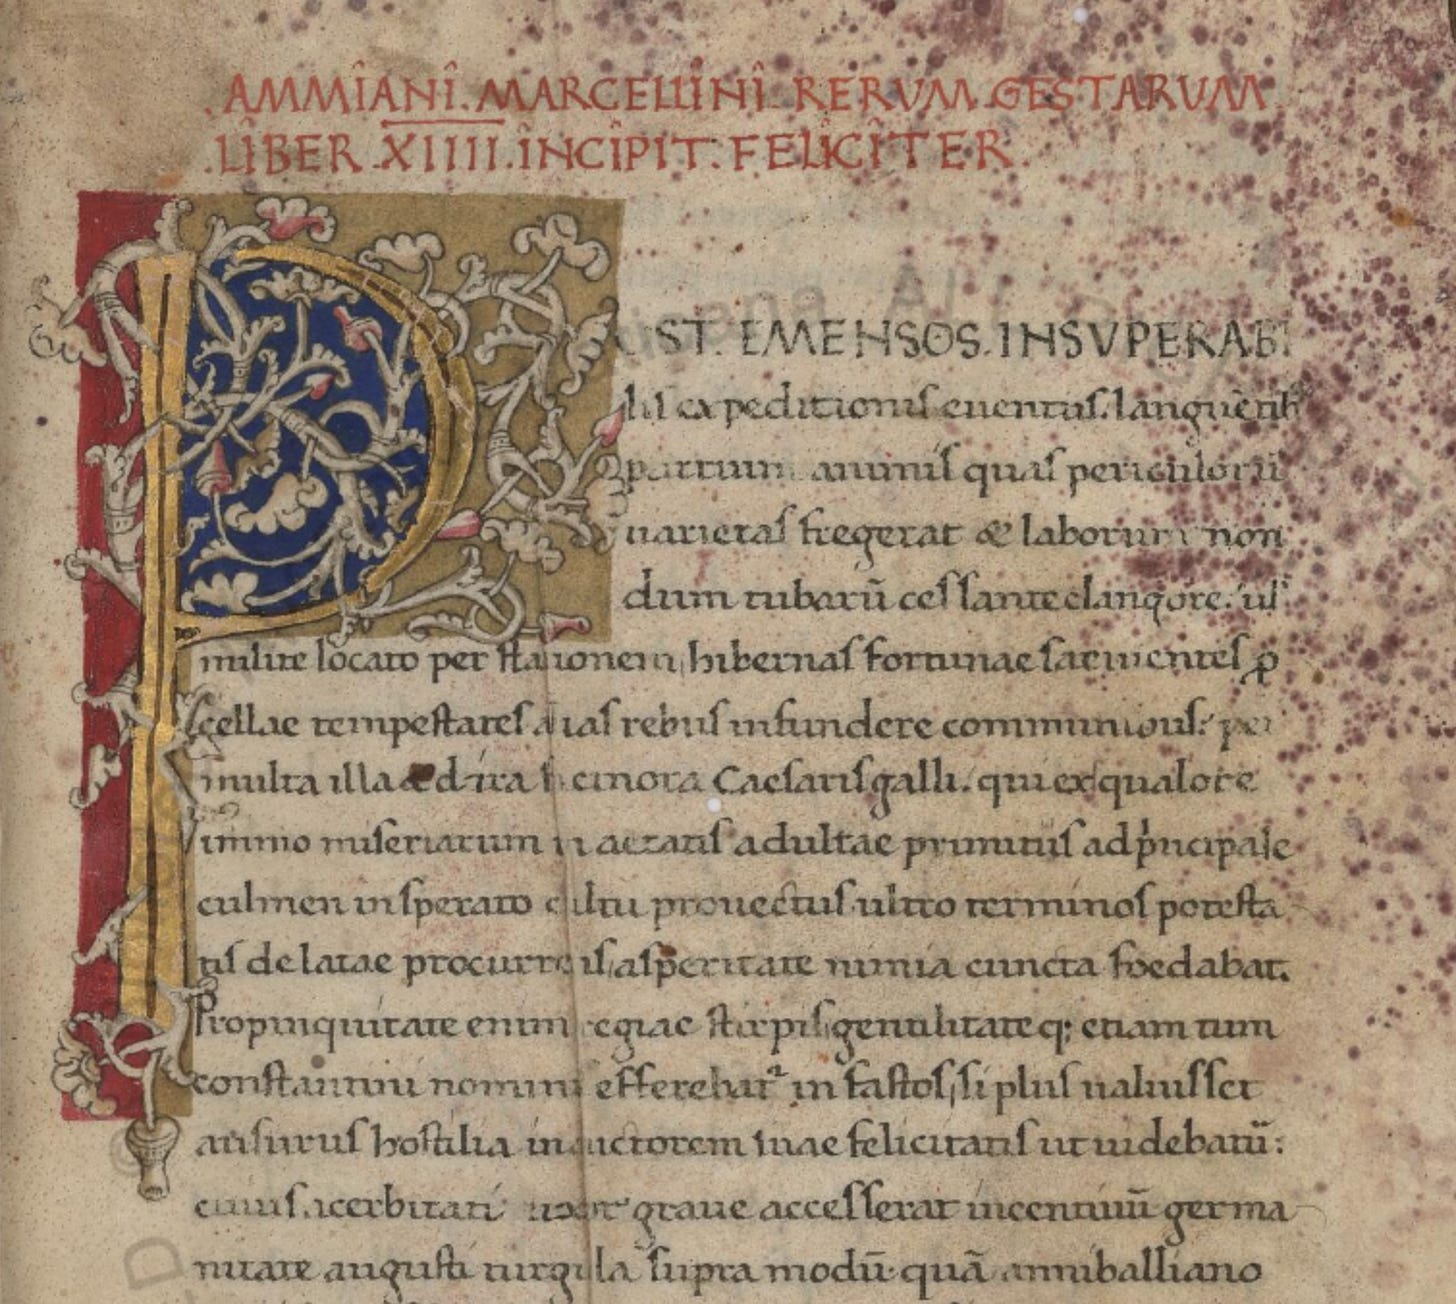 .AMMIANI. MARCELLINI. RERVM. GESTARUM.
.LIBER. XIIII. INCIPIT. FELICITER.
POST. EMENSOS. INSVPERABI
lis expeditionis euentus. languētibꝰ
partium animis quas periculorū
uarietas fregerat & laborum non
dum tubarū cessante clangore. uł
milite locato per stationem hibernas fortunae saeuientes p̄
cellae tempestates alias rebus infundere communious. per
multa illa & dira facinora Caesaris galli. qui ex qualore
immo miseriarum in aetatis adultae primitus ad p̍ncipale
culmen insperato cultu prouectus ultro terminos potesta
tis delatae procurrens asperitate nimia cuncta foedabat.
Propinquitate enim regiae stirpis gentilitate q; etiam tum
constantini nomini efferebat᷑ in fastos, si plus ualuisset
ausurus hostilia in auctorem suae felicitatis ut uidebatū:
cuius acerbitati uxor graue accesserat incentiuū germa
nitate augusti turgida supra modū quā anniballiano